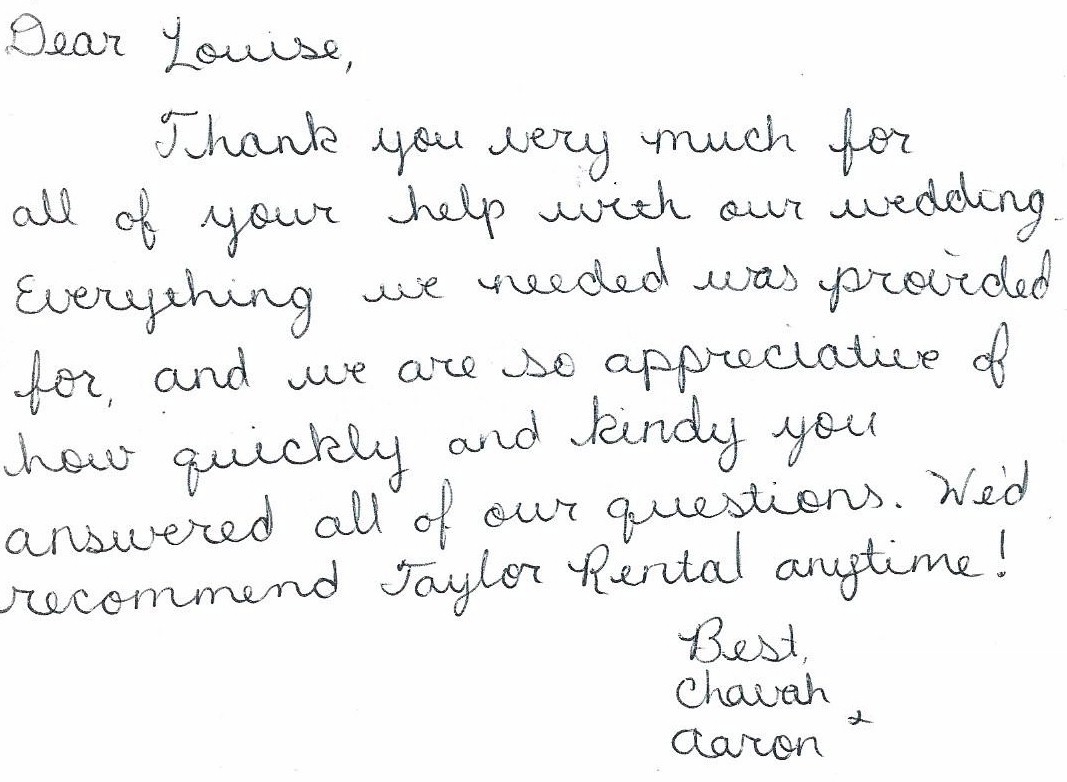 Dear Louise,
Thank you very much for
all of your help with our wedding.
Everything we needed was provided
for, and we are so appreciative of
how quickly and kindy you
answered all of our questions. We'd
recommend Taylor Rental anytime!
Best,
Chavah &
Aaron